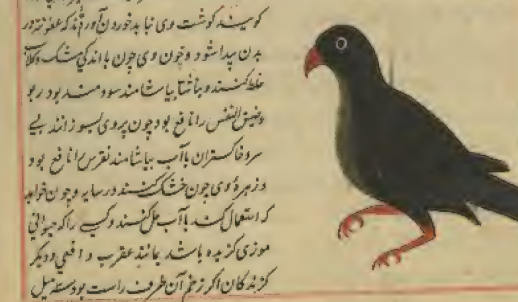 کویند کوشت وی نباید خوردن آورده‌اند که عفونت در
بدن پیدا شود و خون وی چون با اندکی مشک و کلاب
خلط کنند و بناشتا بیاشامند سودمند بود ربو
وضیق النفس را نافع بود و چون پر وی بسوزانند بی
سر و خاکستر آن باآب بیاشامند نقرس را نافع بود
و زهرهٔ وی چون خشک کنند در سایه و چون خواهند
که استعمال کنند باآب حل کنند و کسی را که حیوانی
موزی کزیده باشد مانند عقرب و افعی و دیکر
کزندکان اکر زخم آن طرف راست بود سه میل